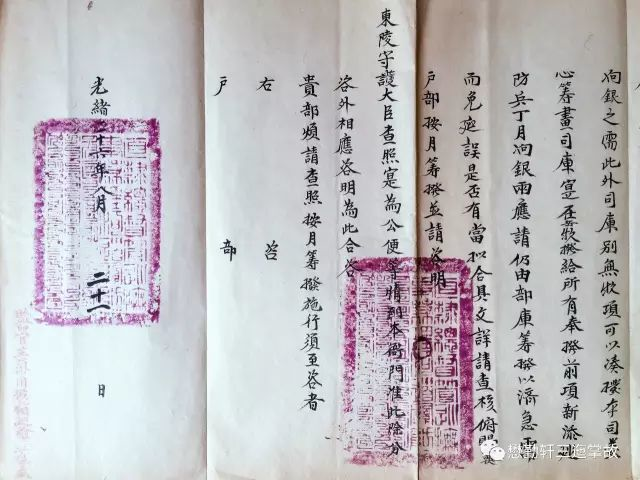 餉銀之需此外司庫別無款項可以湊撥本司悉
心籌畫司庫寔在無款撥給所有奉撥前項新添
防兵丁月餉銀兩應請仍由部庫籌撥以濟急需
而免延誤是否有當擬合具文詳請查核俯賜
戶部按月籌撥並請咨明
東陵守護大臣查照寔為公便等情到本衙門准此除分
咨外相應咨明為此合咨
貴部煩請查照按月籌撥施行須至咨者
右 咨
戶 部
光緒二十六年八月 二十一 日
懋勒轩主迤掌故